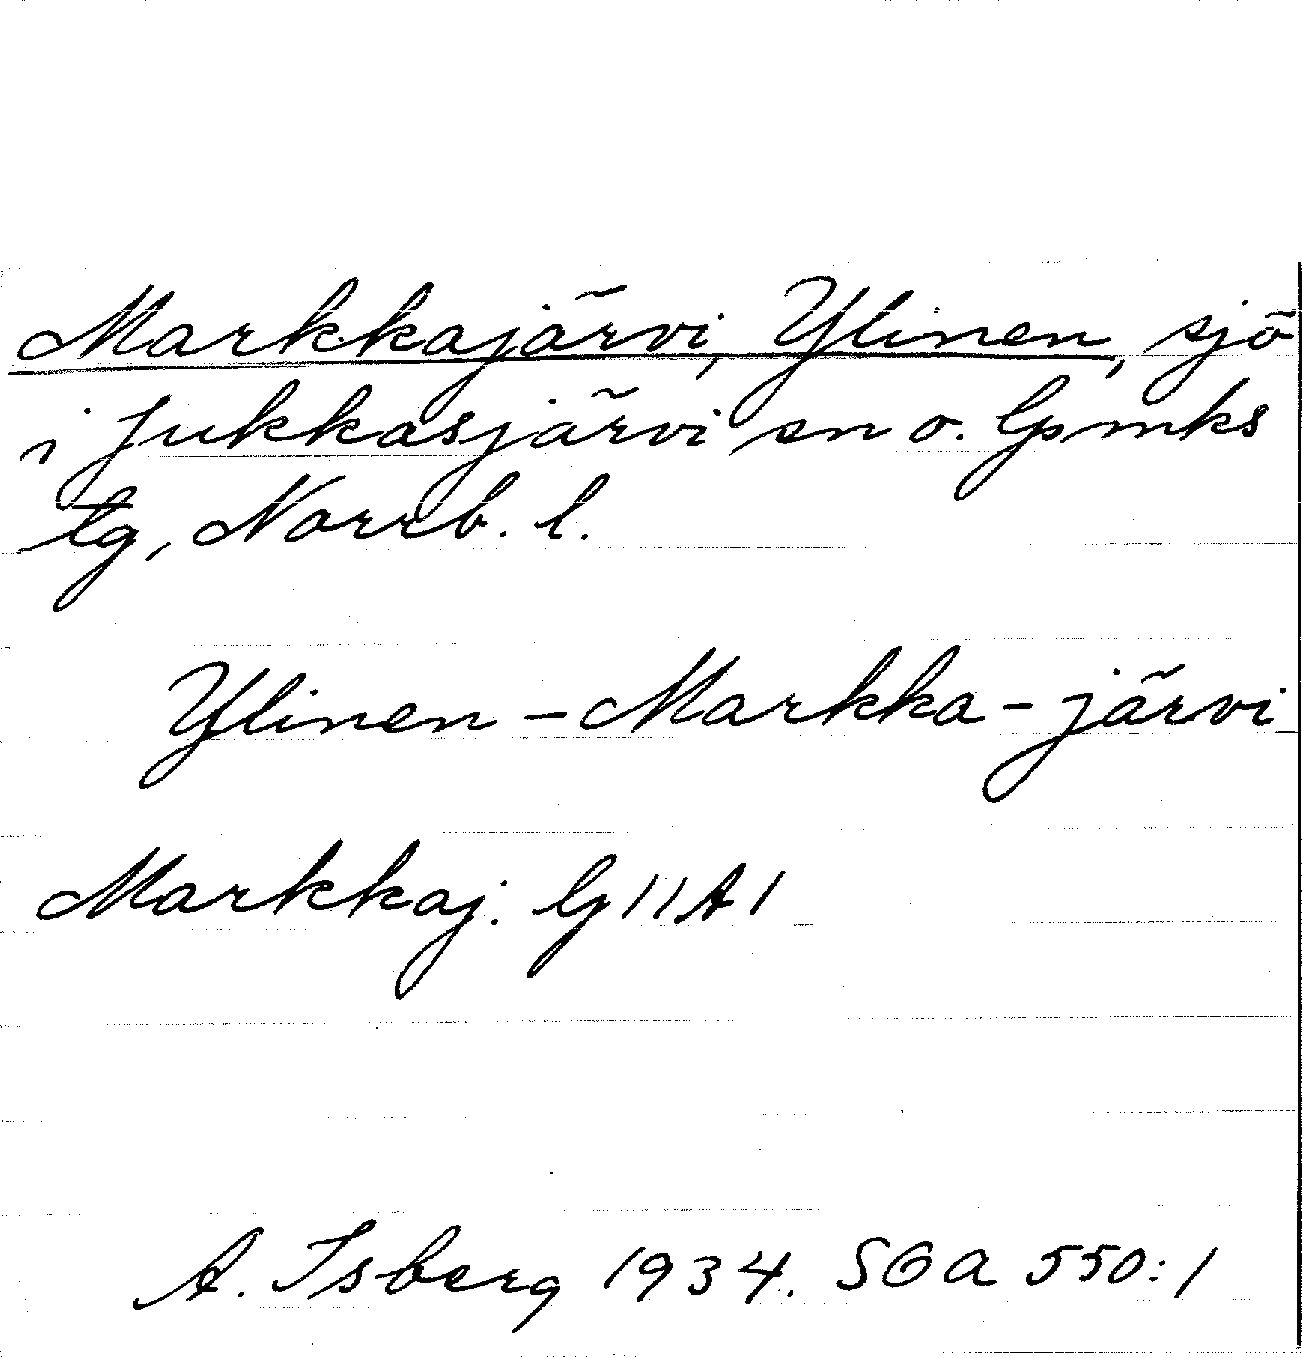 Markkajärvi, Ylinen, sjö
i Jukkasjärvi sn o. lpmks
tg, Norrb. l.
Ylinen - Markka - järvi
Markkaj. G 11 A 1
A. Isberg 1934. SOA 550:1